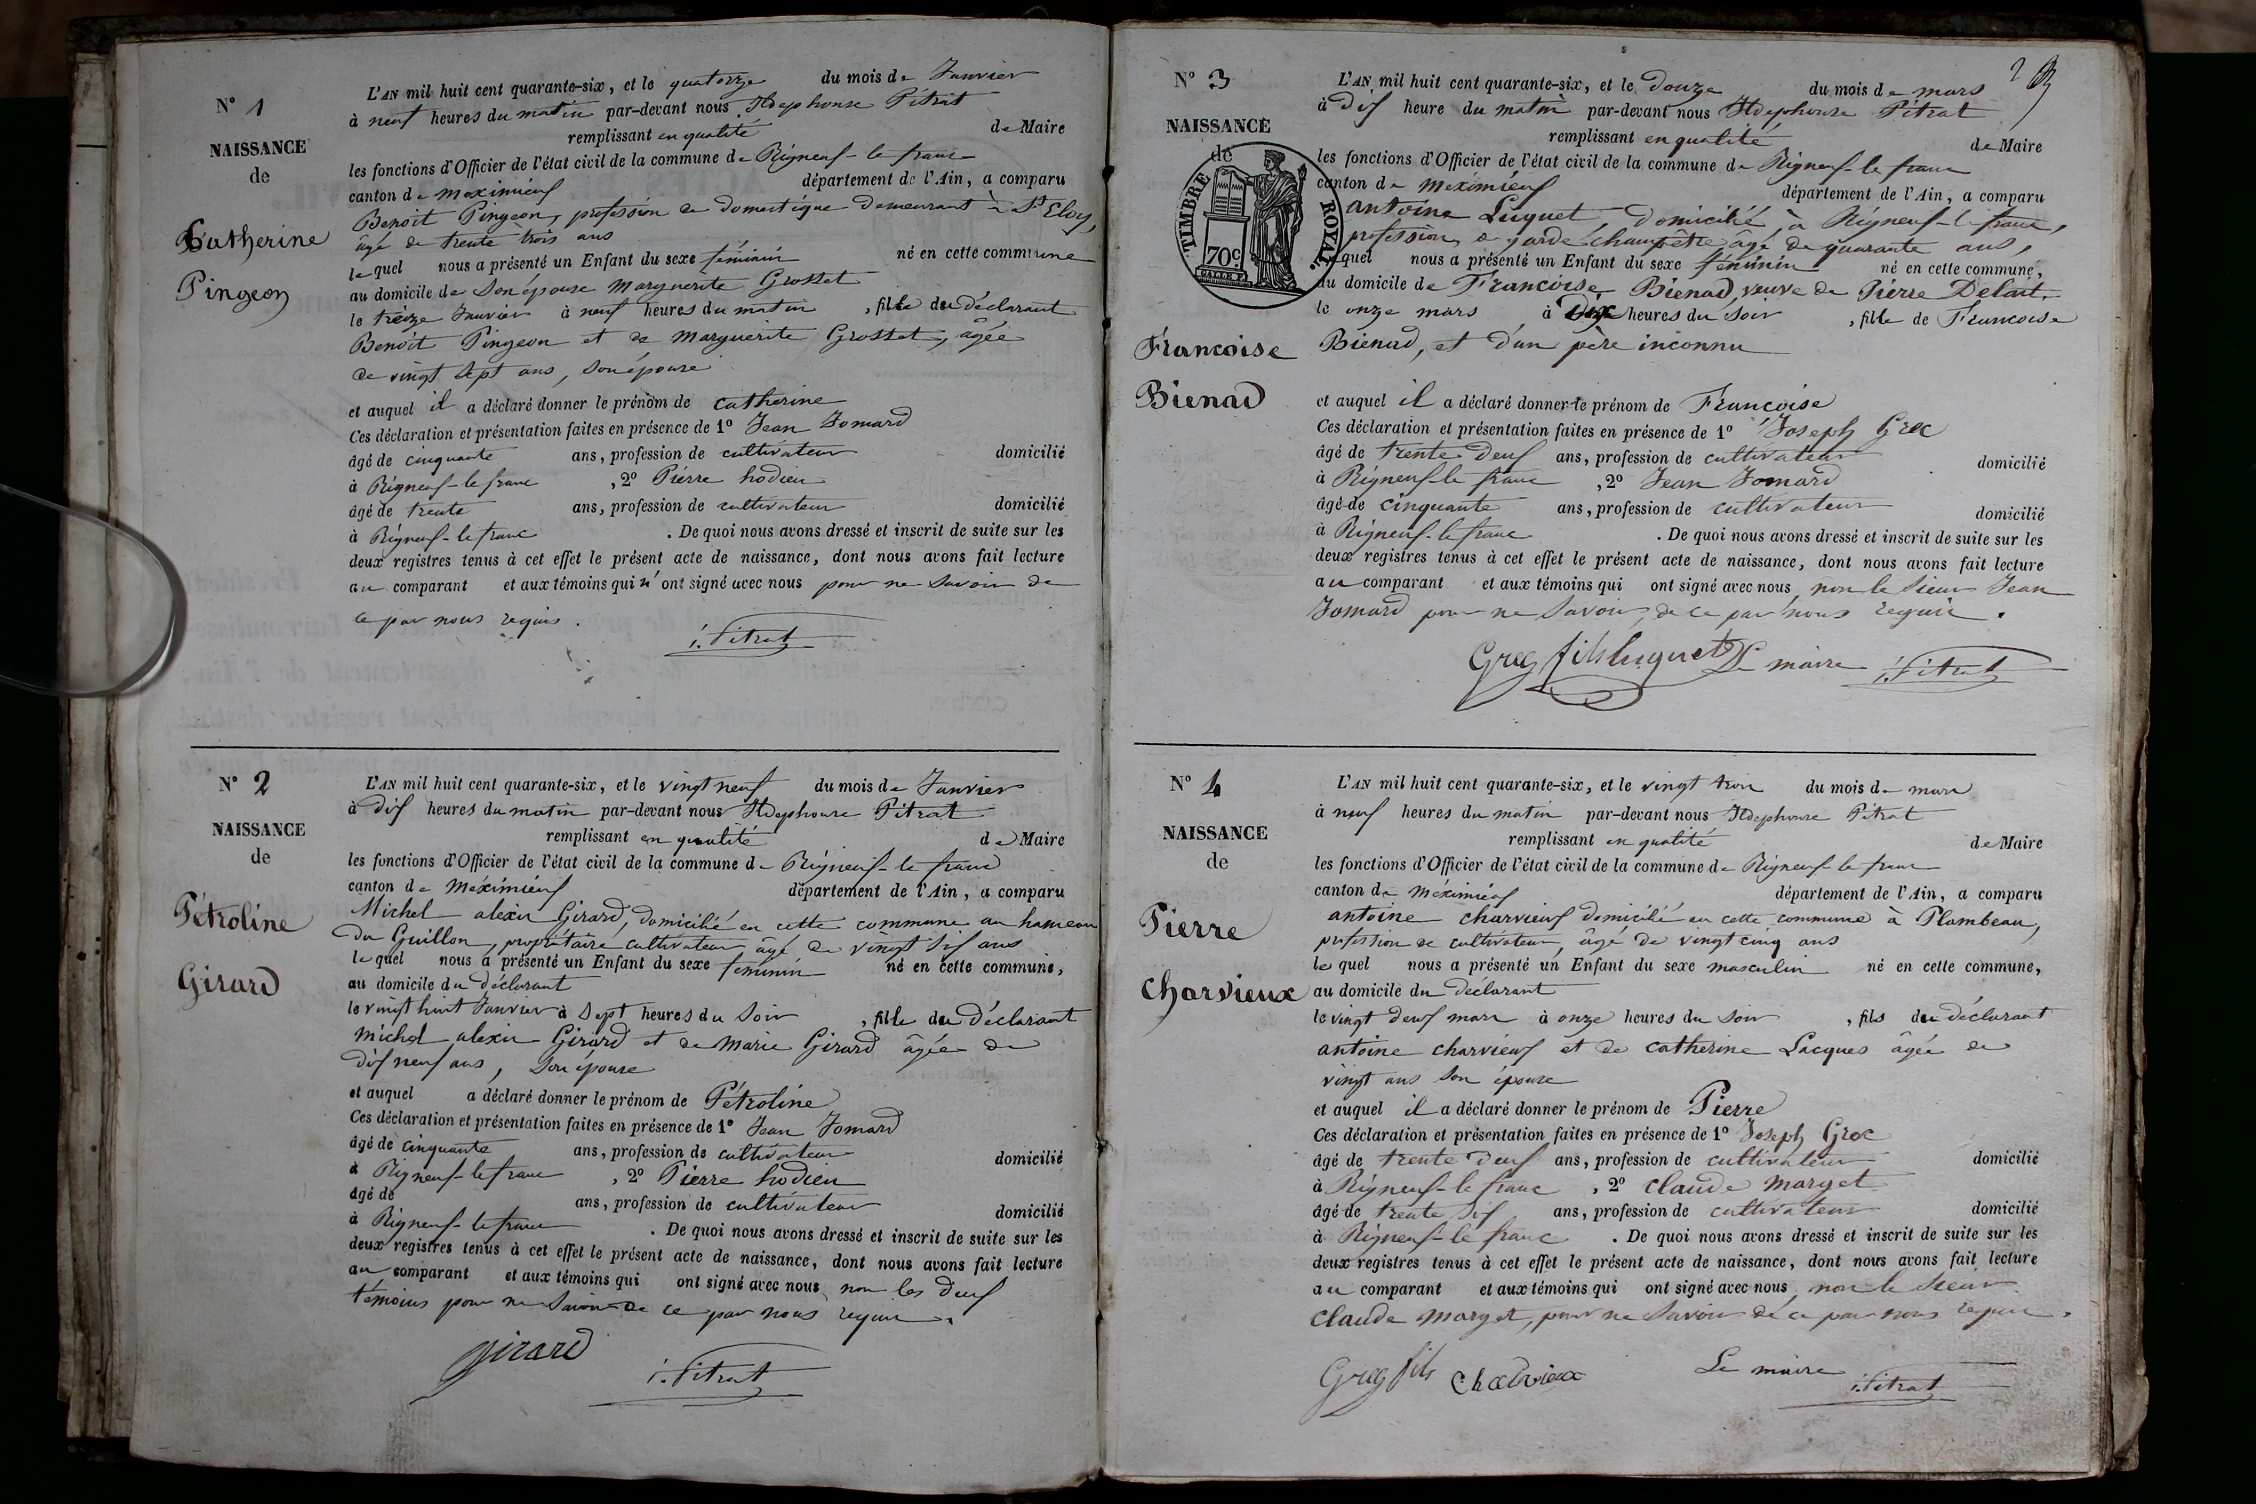 N° 1
NAISSANCE
de
Catherine
Pingeon
L'AN mil huit cent quarante-six, et le quatorze du mois de Janvier
à neuf heures du matin par-devant nous Ildephonse Pitrat
remplissant en qualité de Maire
les fonctions d'Officier de l'état civil de la commune de Rigneuf-le franc
canton de meximieuf département de l'Ain, a comparu
Benoit Pingeon, profession de domestique demeurant à St Eloy,
âgé de trente trois ans
lequel nous a présenté un Enfant du sexe féminin né en cette commune
au domicile de son épouse Marguerite Grosset
le treize Janvier à neuf heures du matin, fille du déclarant
Benoit Pingeon et de Marguerite Grosset, âgée
de vingt sept ans, son épouse
et auquel il a déclaré donner le prénom de catherine
Ces déclaration et présentation faites en présence de 1° Jean Jomard
âgé de cinquante ans, profession de cultivateur domicilié
à Rigneuf-le franc, 2° Pierre hodieu
âgé de trente ans, profession de cultivateur domicilié
à Rigneuf-le franc. De quoi nous avons dressé et inscrit de suite sur les
deux registres tenus à cet effet le présent acte de naissance, dont nous avons fait lecture
au comparant et aux témoins qui n'ont signé avec nous pour ne savoir de
ce par nous requis.
i. Pitrat
N° 2
NAISSANCE
de
Pétroline
Girard
L'AN mil huit cent quarante-six, et le vingt neuf du mois de Janvier
à dix heures du matin par-devant nous Ildephonse Pitrat
remplissant en qualité de Maire
les fonctions d'Officier de l'état civil de la commune de Rigneuf-le franc
canton de méximieuf département de l'Ain, a comparu
Michel alexis Girard, domicilié en cette commune au hameau
du Guillon, propriétaire cultivateur âgé de vingt six ans
lequel nous a présenté un Enfant du sexe féminin né en cette commune,
au domicile du déclarant
le vingt huit Janvier à sept heures du soir, fille du déclarant
michel alexis Girard et de Marie Girard âgée de
dix neuf ans, son épouse
et auquel a déclaré donner le prénom de Pétroline
Ces déclaration et présentation faites en présence de 1° Jean Jomard
âgé de cinquante ans, profession de cultivateur domicilié
à Rigneuf-le franc, 2° Pierre hodieu
âgé de ans, profession de cultivateur domicilié
à Rigneuf-le franc. De quoi nous avons dressé et inscrit de suite sur les
deux registres tenus à cet effet le présent acte de naissance, dont nous avons fait lecture
au comparant et aux témoins qui ont signé avec nous, non les deux
témoins pour ne savoir de ce par nous requis.
Girard
i. Pitrat
2
N° 3
NAISSANCE
de
TIMBRE ROYAL
70c
Francoise
Bienad
L'AN mil huit cent quarante-six, et le douze du mois de mars
à dix heure du matin par-devant nous Ildephonse Pitrat
remplissant en qualité de Maire
les fonctions d'Officier de l'état civil de la commune de Rigneuf-le franc
canton de meximieuf département de l'Ain, a comparu
antoine Luquet, domicilié à Rigneuf-le franc,
profession de garde champêtre âgé de quarante ans,
lequel nous a présenté un Enfant du sexe féminin né en cette commune,
au domicile de Francoise Bienad, veuve de Pierre Delait
le onze mars à Dix heures du soir, fille de Francoise
Bienad, et d'un père inconnu
et auquel il a déclaré donner le prénom de Francoise
Ces déclaration et présentation faites en présence de 1° Joseph Grec
âgé de trente deux ans, profession de cultivateur domicilié
à Rigneuf-le franc, 2° Jean Jomard
âgé de cinquante ans, profession de cultivateur domicilié
à Rigneuf-le franc. De quoi nous avons dressé et inscrit de suite sur les
deux registres tenus à cet effet le présent acte de naissance, dont nous avons fait lecture
au comparant et aux témoins qui ont signé avec nous, non le sieur Jean
Jomard pour ne savoir, de ce par nous requis.
Greg fils luquet Le maire i. Pitrat
N° 4
NAISSANCE
de
Pierre
Charvieux
L'AN mil huit cent quarante-six, et le vingt trois du mois de mars
à neuf heures du matin par-devant nous Ildephonse Pitrat
remplissant en qualité de Maire
les fonctions d'Officier de l'état civil de la commune de Rigneuf-le franc
canton de méximieuf département de l'Ain, a comparu
antoine charvieux domicilié en cette commune à Plambeau,
profession de cultivateur, âgé de vingt cinq ans
lequel nous a présenté un Enfant du sexe masculin né en cette commune,
au domicile du déclarant
le vingt deux mars à onze heures du soir, fils du déclarant
antoine charvieux et de catherine Lacques âgée de
vingt ans son épouse
et auquel il a déclaré donner le prénom de Pierre
Ces déclaration et présentation faites en présence de 1° Joseph Grec
âgé de trente deux ans, profession de cultivateur domicilié
à Rigneuf-le franc, 2° claude marget
âgé de trente six ans, profession de cultivateur domicilié
à Rigneuf-le franc. De quoi nous avons dressé et inscrit de suite sur les
deux registres tenus à cet effet le présent acte de naissance, dont nous avons fait lecture
au comparant et aux témoins qui ont signé avec nous, non le sieur
claude marget, pour ne savoir de ce par nous requis.
Greg fils Charvieux Le maire i. Pitrat